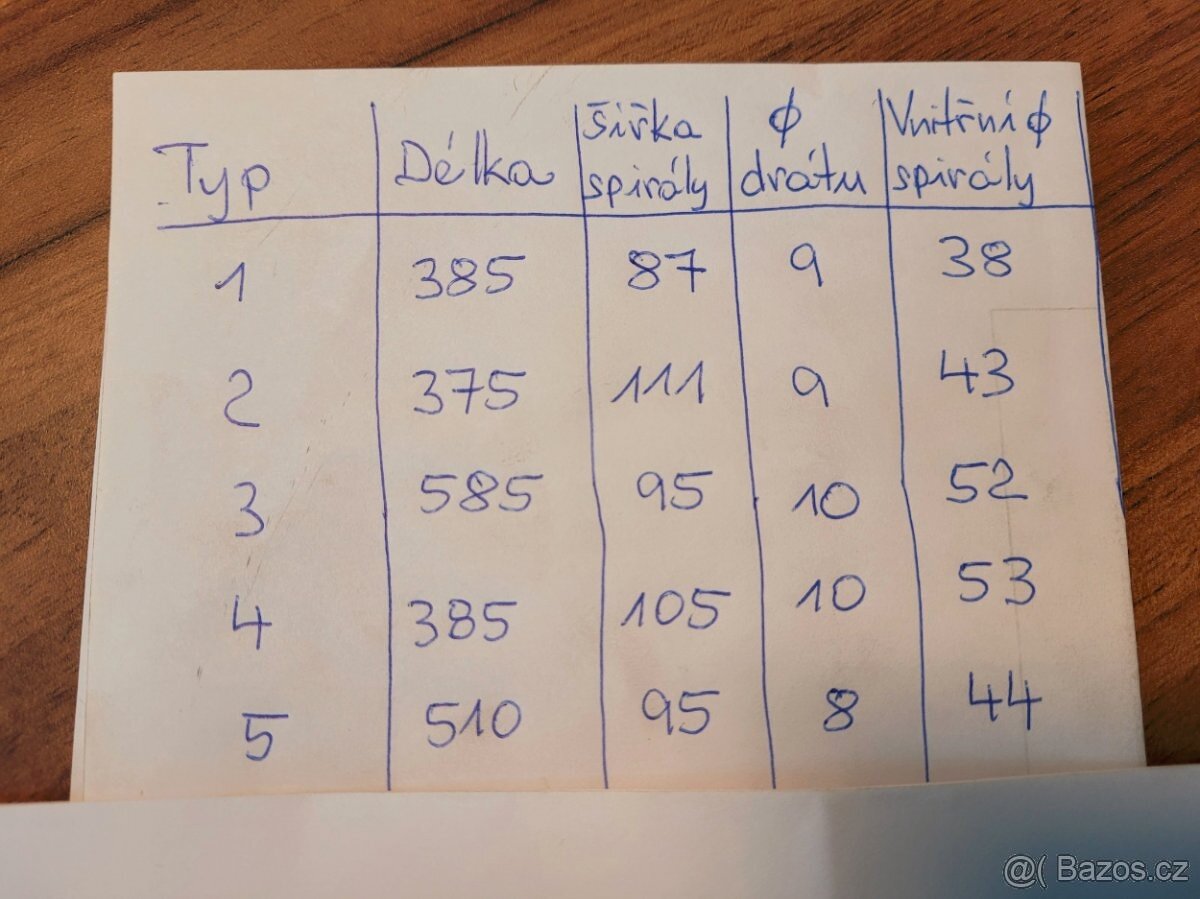 Typ Délka šířka spirály ϕ drátu Vnitřní ϕ spirály
1 385 87 9 38
2 375 111 9 43
3 585 95 10 52
4 385 105 10 53
5 510 95 8 44
@( Bazos.cz